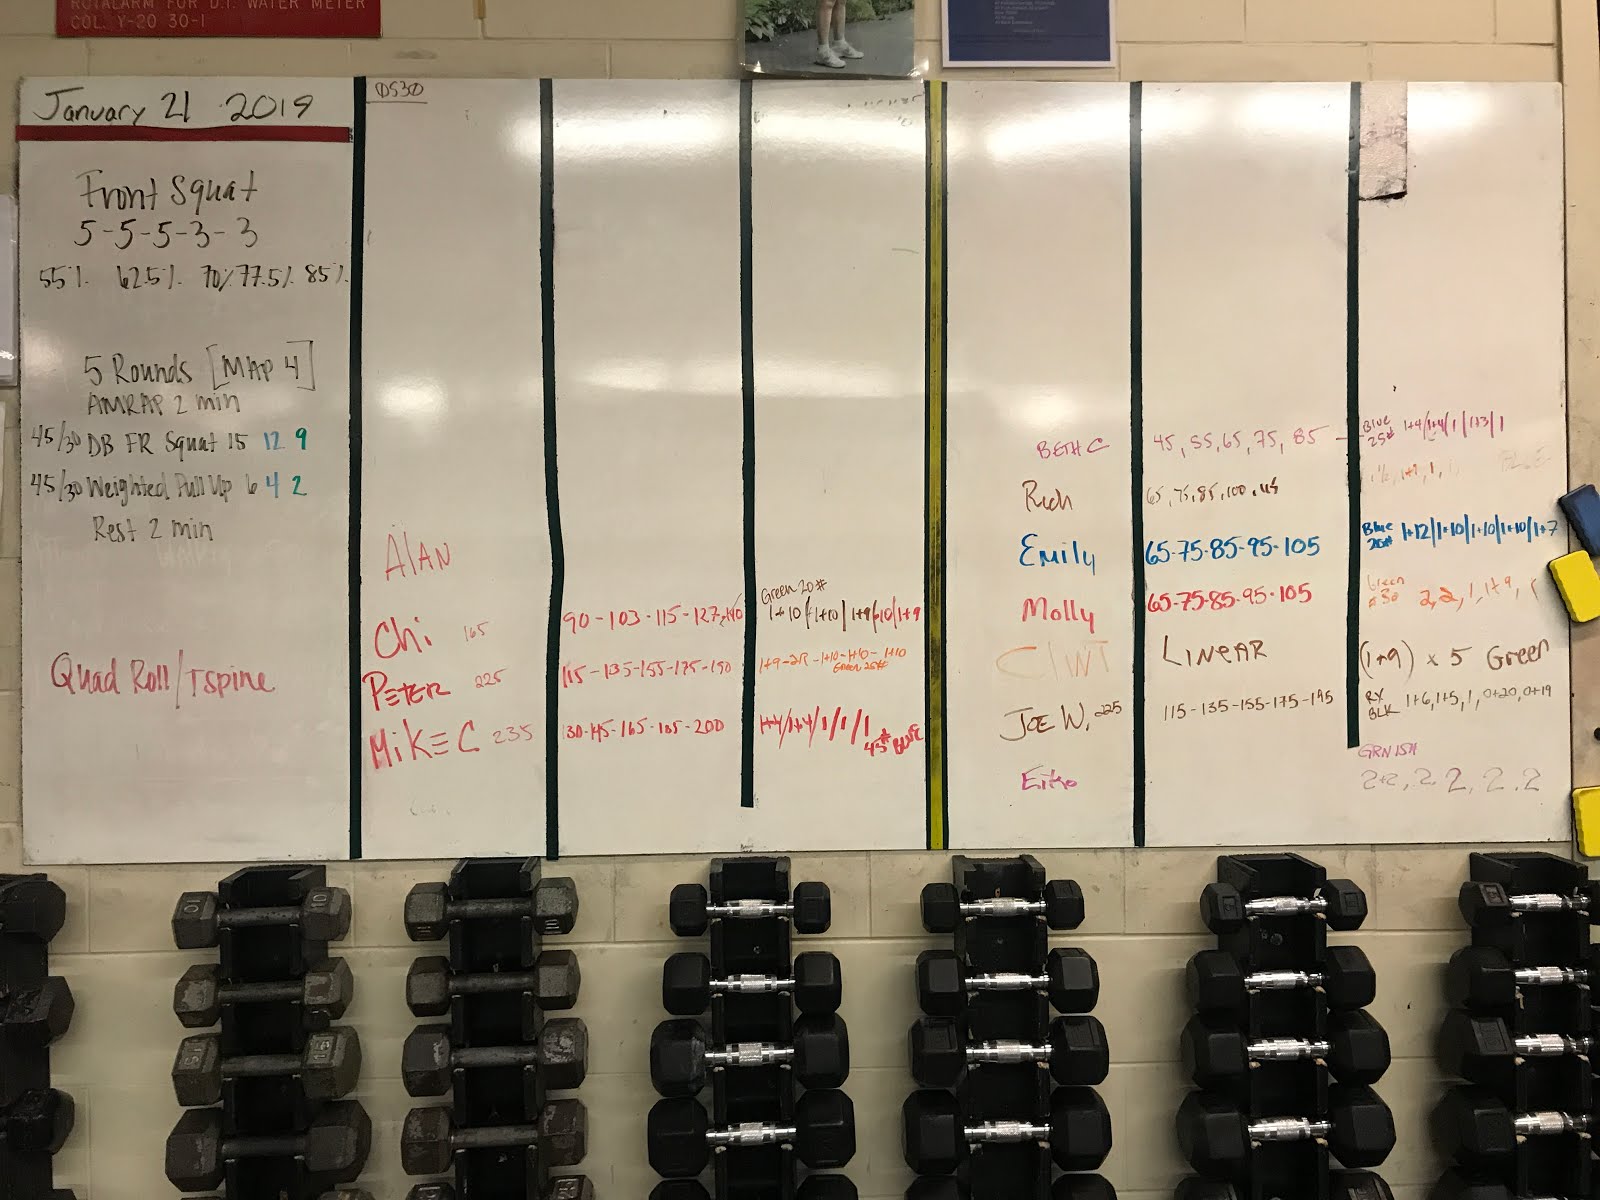 ROTALARM FOR D.I. WATER METER
COL. Y-20 30-1
January 21 2019
Front Squat
5-5-5-3-3
55% 62.5% 70% 77.5% 85%
5 Rounds [MAP 4]
AMRAP 2 min
45/30 DB FR Squat 15 12 9
45/30 Weighted Pull Up 6 4 2
Rest 2 min
Quad Roll/Tspine
0530
ALAN
Green 20#
Chi 165 90-103-115-127-140 1+10/1+10/1+9/
PETER 225 115-135-155-175-190 1+9-2R-1+10-1+10-1+10
GREEN 25#
MIKE C 235 130-145-165-185-200 1+4/1+4/1/1/1
45# BLUE
BETH C 45, 55, 65, 75, 85 Blue 25# 1+4/1+4/1/1+3/1
Rich 65, 75, 85, 100, 115
Emily 65-75-85-95-105 Blue 1+12/1+10/1+10/1+10/1+7
Molly 65-75-85-95-105 Green 2, 2, 1, 1+9,
CLINT LINEAR (1+9) x 5 Green
JOE W. 225 115-135-155-175-195 RX BLK 1+6, 1+5, 1, 0+20, 0+19
GRN 15#
Eiko 2+2, 2, 2, 2, 2
10 10
15 15